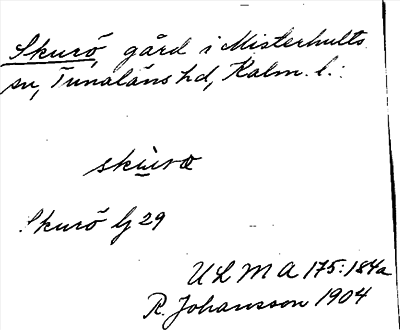 Skurö, gård i Misterhults
sn, Tunaläns hd, Kalm. l.:
skùrα
Skurö Gj 29
ULMA 175:184a
R. Johansson 1904